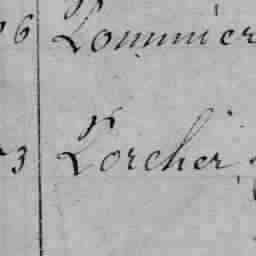 6 Lommer
3 Lorcher